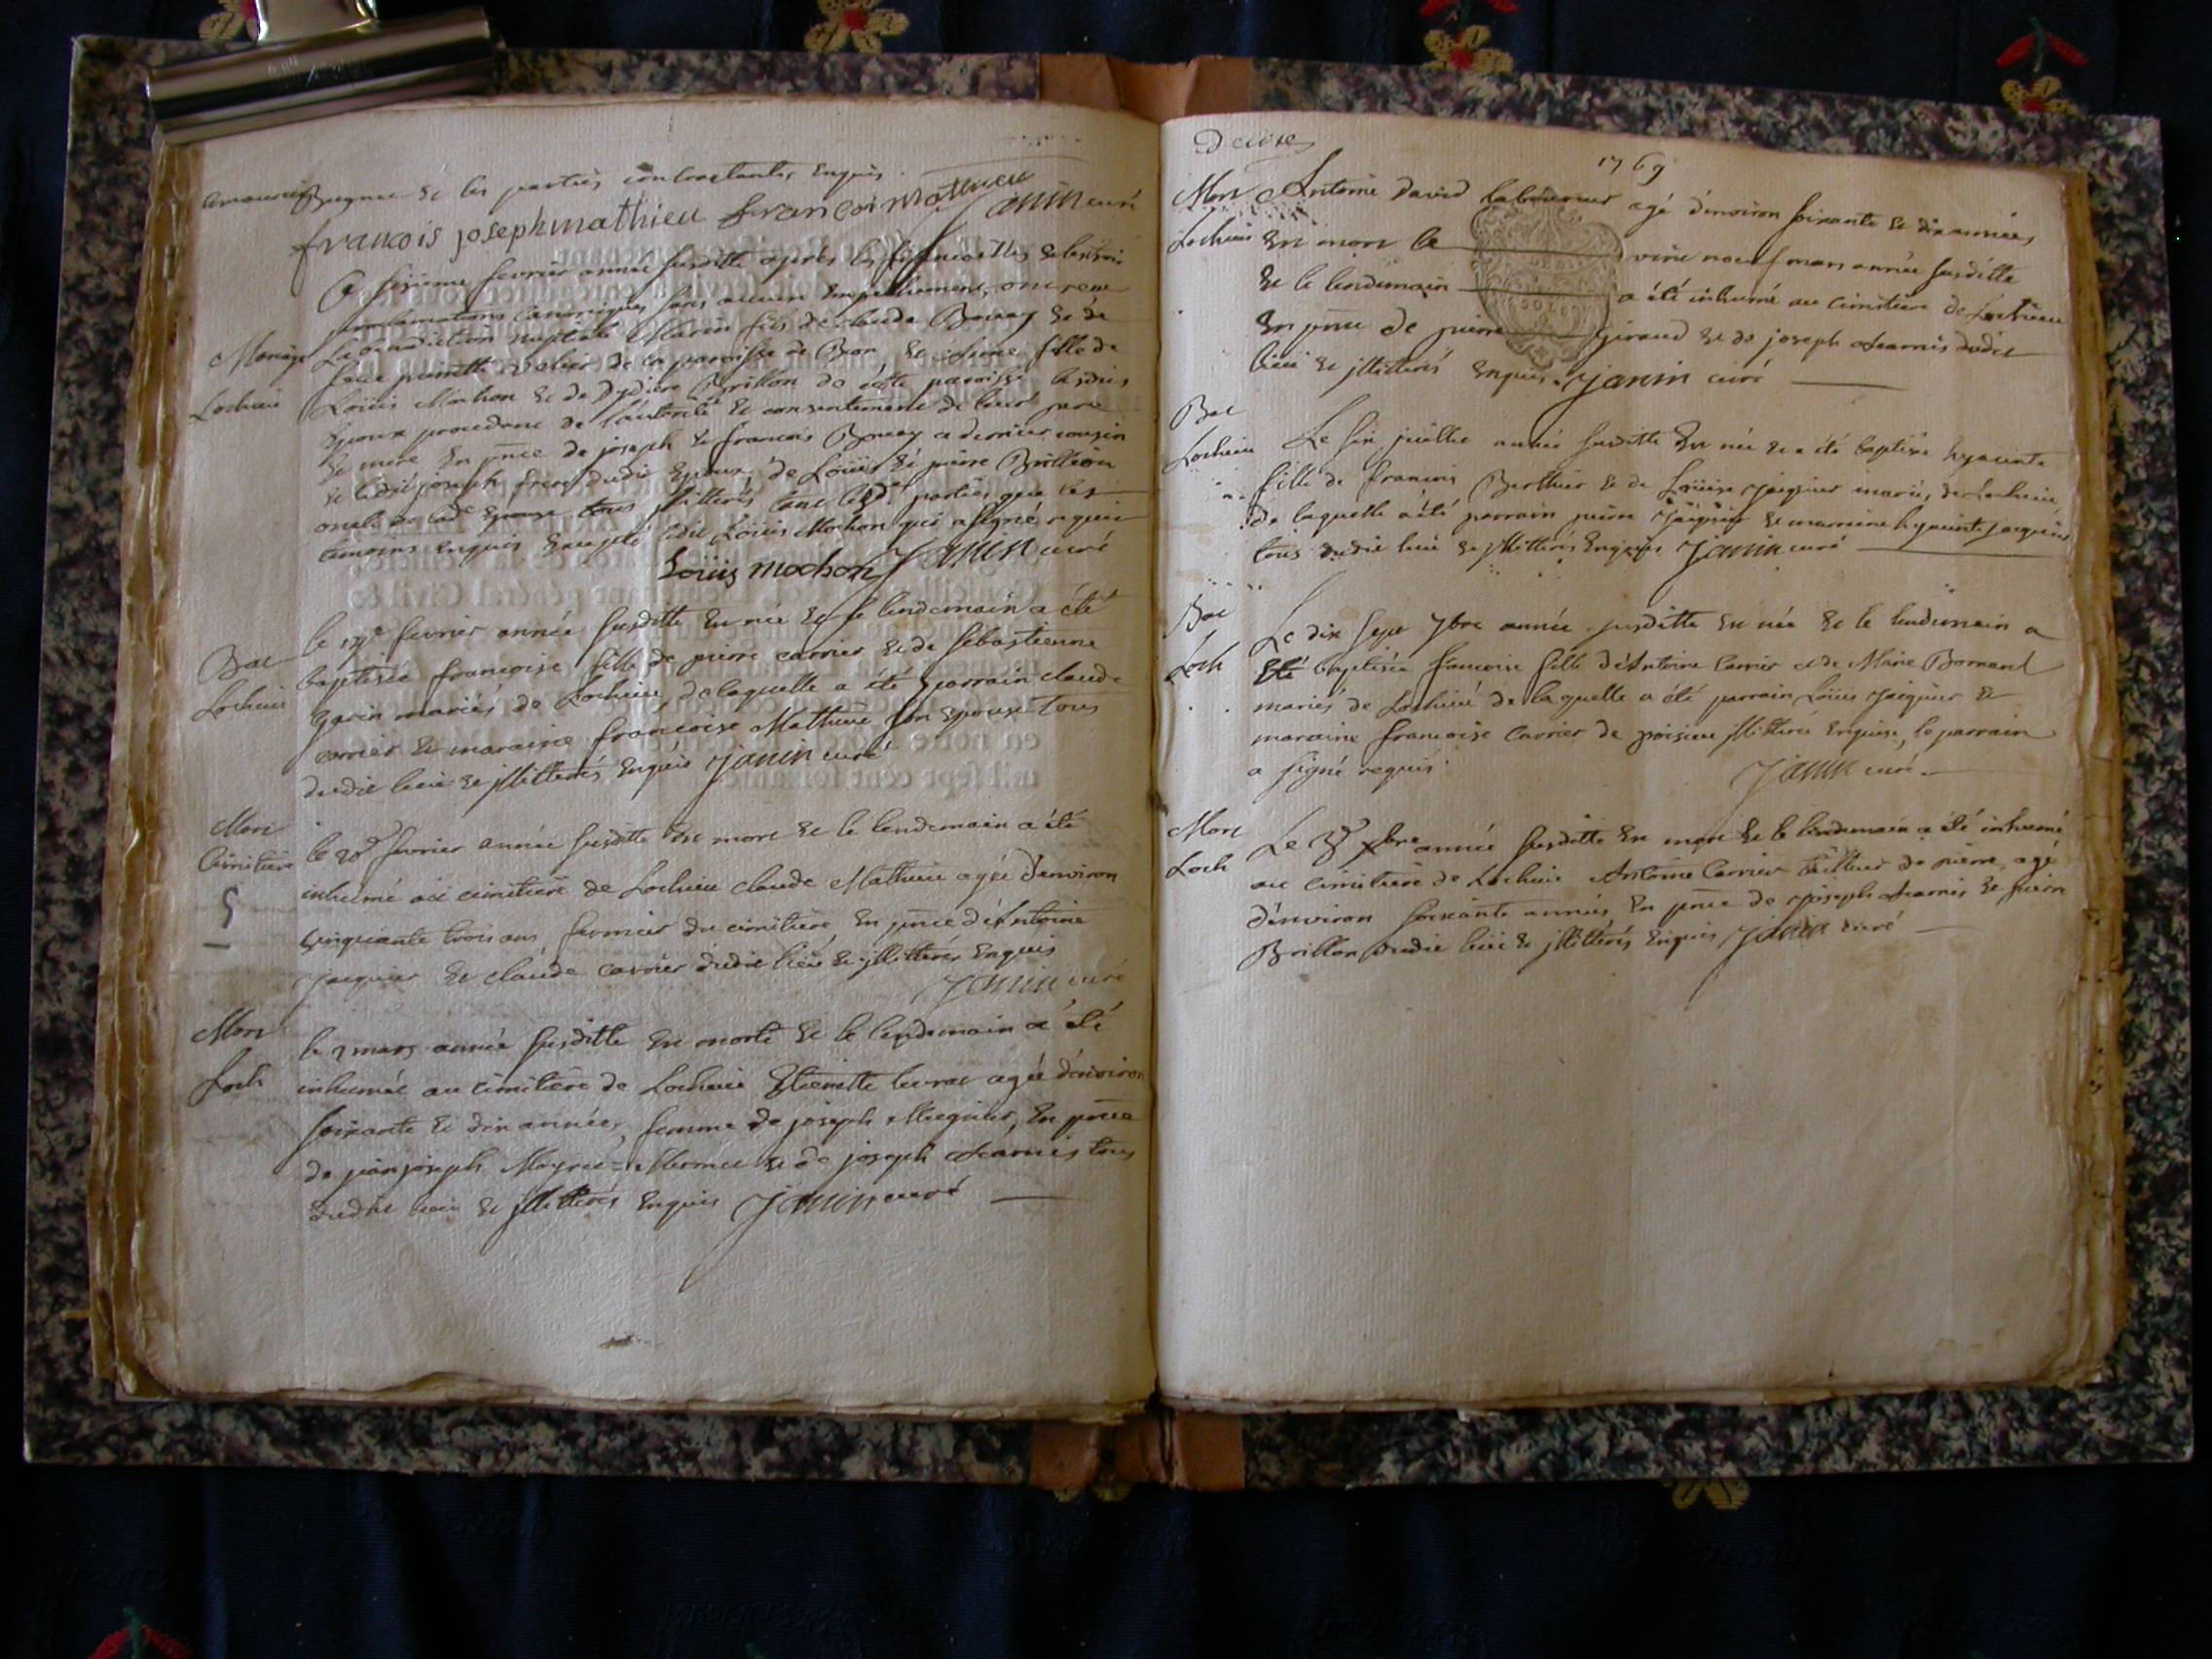 requis de les parties contractantes Enquis
francois joseph mathieu francoi mathieu Janin curé
Ce sixieme fevrier année susditte après les fiancailles et les trois
proclamations canoniques sans aucun Empechement, ont receu
Mariage
Lochieu
La benediction nuptiale Marin fils de claude Bouvay Et de
feue pierrette de la paroisse de Bion, Et fille de
Loüis Mochon Et de Brillon de cette paroisse lesdits
Epoux procedant de l'autorité Et consentement de leurs pere
Et mere En pnce de joseph Et francois Bouvay ce dernier cousin
Et ledit joseph frere dudit Epoux, de Loüis Et pierre Brillion
oncle de lade Epouse tous jllitterés tant lesd. parties que les
temoins Enquis Excepté ledit Loüis Mochon qui a signé requis
Loüis mochon Janin curé
Bat
Lochieu
le 17e fevrier année susditte Est née Et le lendemain a été
baptisée francoise fille de pierre carrier Et de sébastienne
mariés de Lochieu, de laquelle a été parrain claude
carrier Et maraine francoise Mathieu son Epouse tous
dudit lieu Et jllitterés Enquis Janin curé
Mort
Cimitiere
le 20e fevrier année susditte Est mort Et le lendemain a été
inhumé au cimitiere de Lochieu claude Mathieu agé d'environ
cinquante trois ans fermier du cimitiere En pnce d'Antoine
Jaiquier Et claude carrier dudit lieu Et jllitterés Enquis
Janin curé
Mort
Loch
le 2 mars année susditte Est morte Et le lendemain a été
inhumée au cimitiere de Lochieu Etienette agée d'environ
soixante Et dix années, femme de joseph En pnce
de jean joseph Et de joseph tous
dudit lieu Et jllitterés Enquis Janin curé
1769
Mort
Lochieu
Antoine David laboureur agé d'environ soixante Et dix années
Est mort le vint neuf mars année susditte
Et le lendemain a été inhumé au cimitiere de Lochieu
En pnce de pierre Giraud Et de joseph dudit
lieu Et jllitterés Enquis. Janin curé
Bat
Lochieu
Le six juillet année susditte Est née Et a été baptisée hyacinte
fille de francois Berthier Et de Loüise Jaiquier mariés de Lochieu
de laquelle a été parrain pierre Jaiquier Et marraine hyacinte Jaiquier
tous dudit lieu Et jllitterés Enquis Janin curé
Bat
Loch
Le dix sept 7bre année susditte Est née Et le lendemain a
Eté baptisée francoise fille d'Antoine Carrier et de Marie Bornand
mariés de Lochieu de laquelle a été parrain Loüis Jaiquier Et
maraine francoise Carrier de poisieu jllitterée Enquise, le parrain
a signé requis.
Janin curé
Mort
Loch
Le 3e Xbre année susditte Est mort Et le lendemain a été inhumé
au cimitiere de Lochieu Antoine Carrier de pierre agé
d'environ soixante années En pnce de Joseph Et pierre
Brillon dudit lieu Et jllitterés Enquis Janin curé